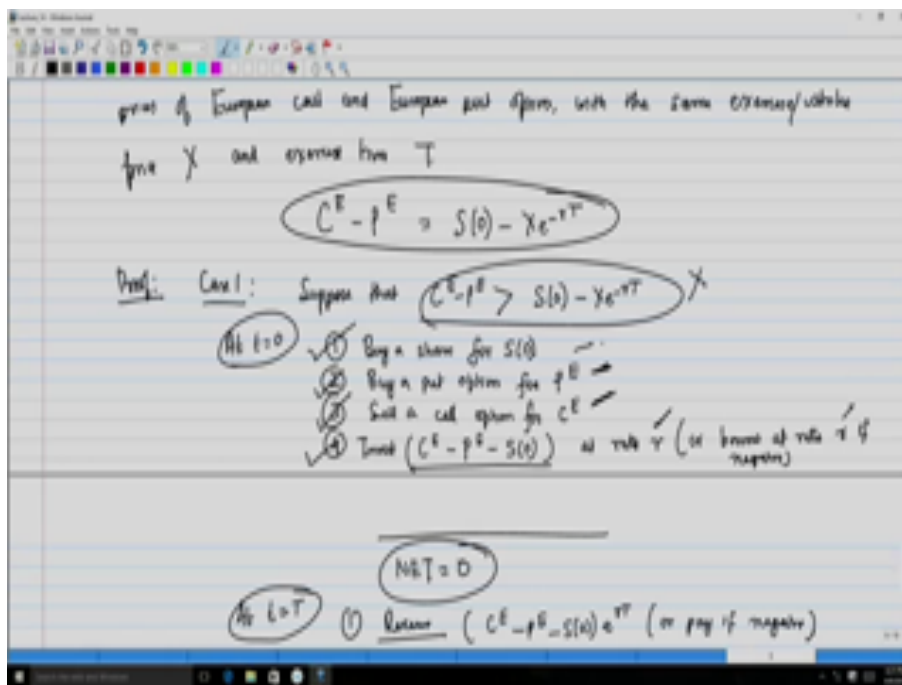 price of European call and European put options, with the same exercise/strike
price X and exercise time T
C^E - P^E = S(0) - Xe^{-rT}
Proof: Case 1: Suppose that C^E - P^E > S(0) - Xe^{-rT} X
At t=0 ① Buy a share for S(0)
② Buy a put option for P^E
③ Sell a call option for C^E
④ Invest (C^E - P^E - S(0)) at rate r (or borrow at rate r if
negative)
NET = 0
At t=T ① Receive (C^E - P^E - S(0)) e^{rT} (or pay if negative)